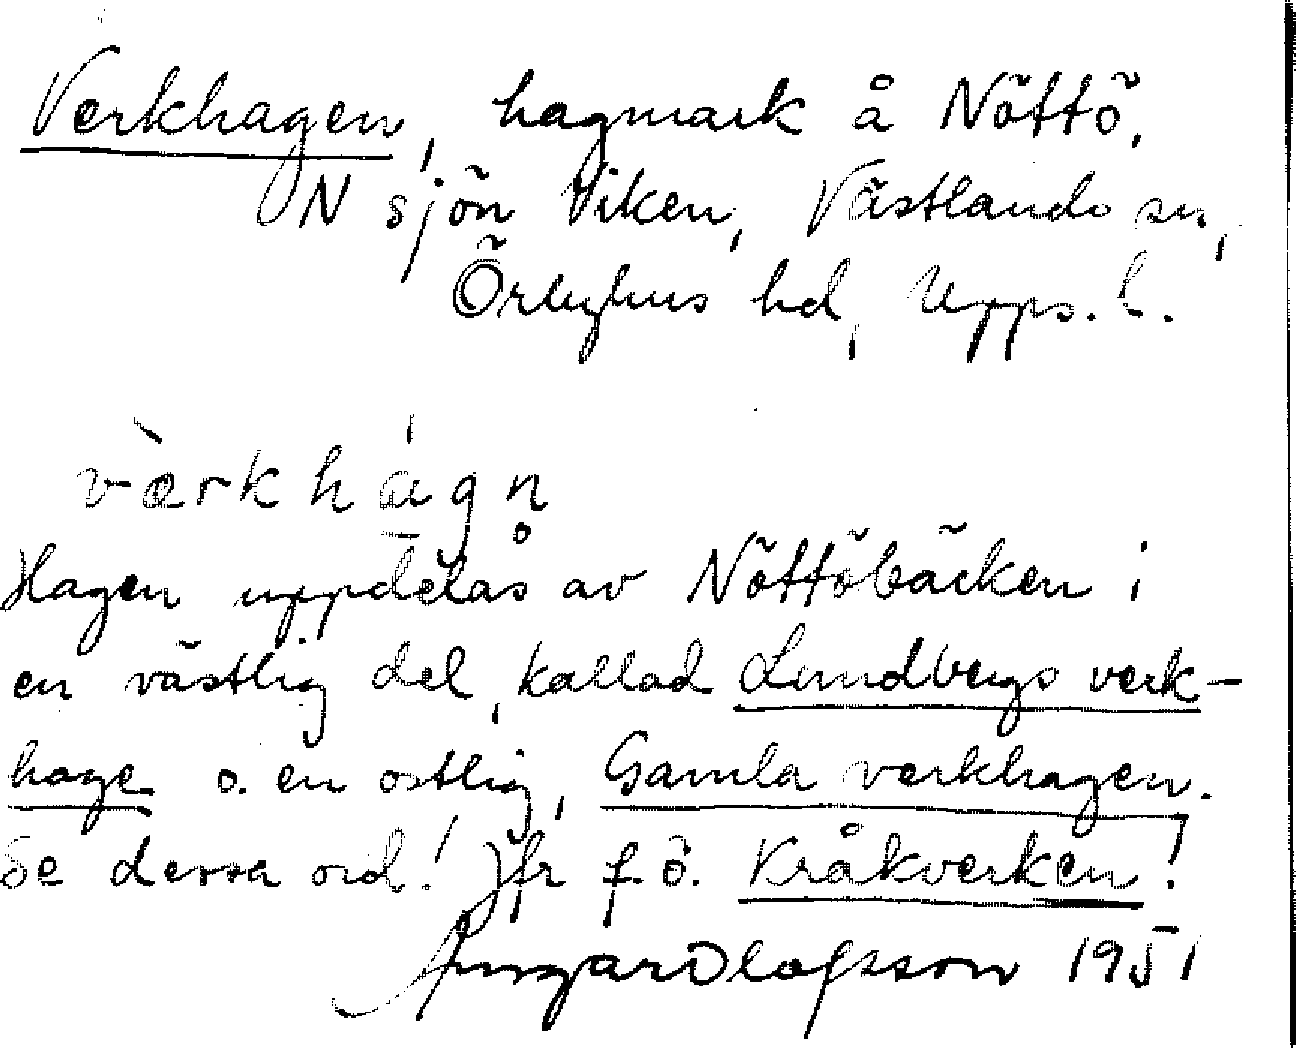 Verkhagen, hagmark å Nöttö,
N sjön Viken, Västlands sn,
Örbyhus hd, Upps. l.
værkhàgn̥
Hagen uppdelas av Nöttöbäcken i
en västlig del, kallad Lundbergs verk-
hage o. en ostlig, Gamla verkhagen.
Se dessa ord! Jfr f. ö. Kråkverken!
Olofsson 1951